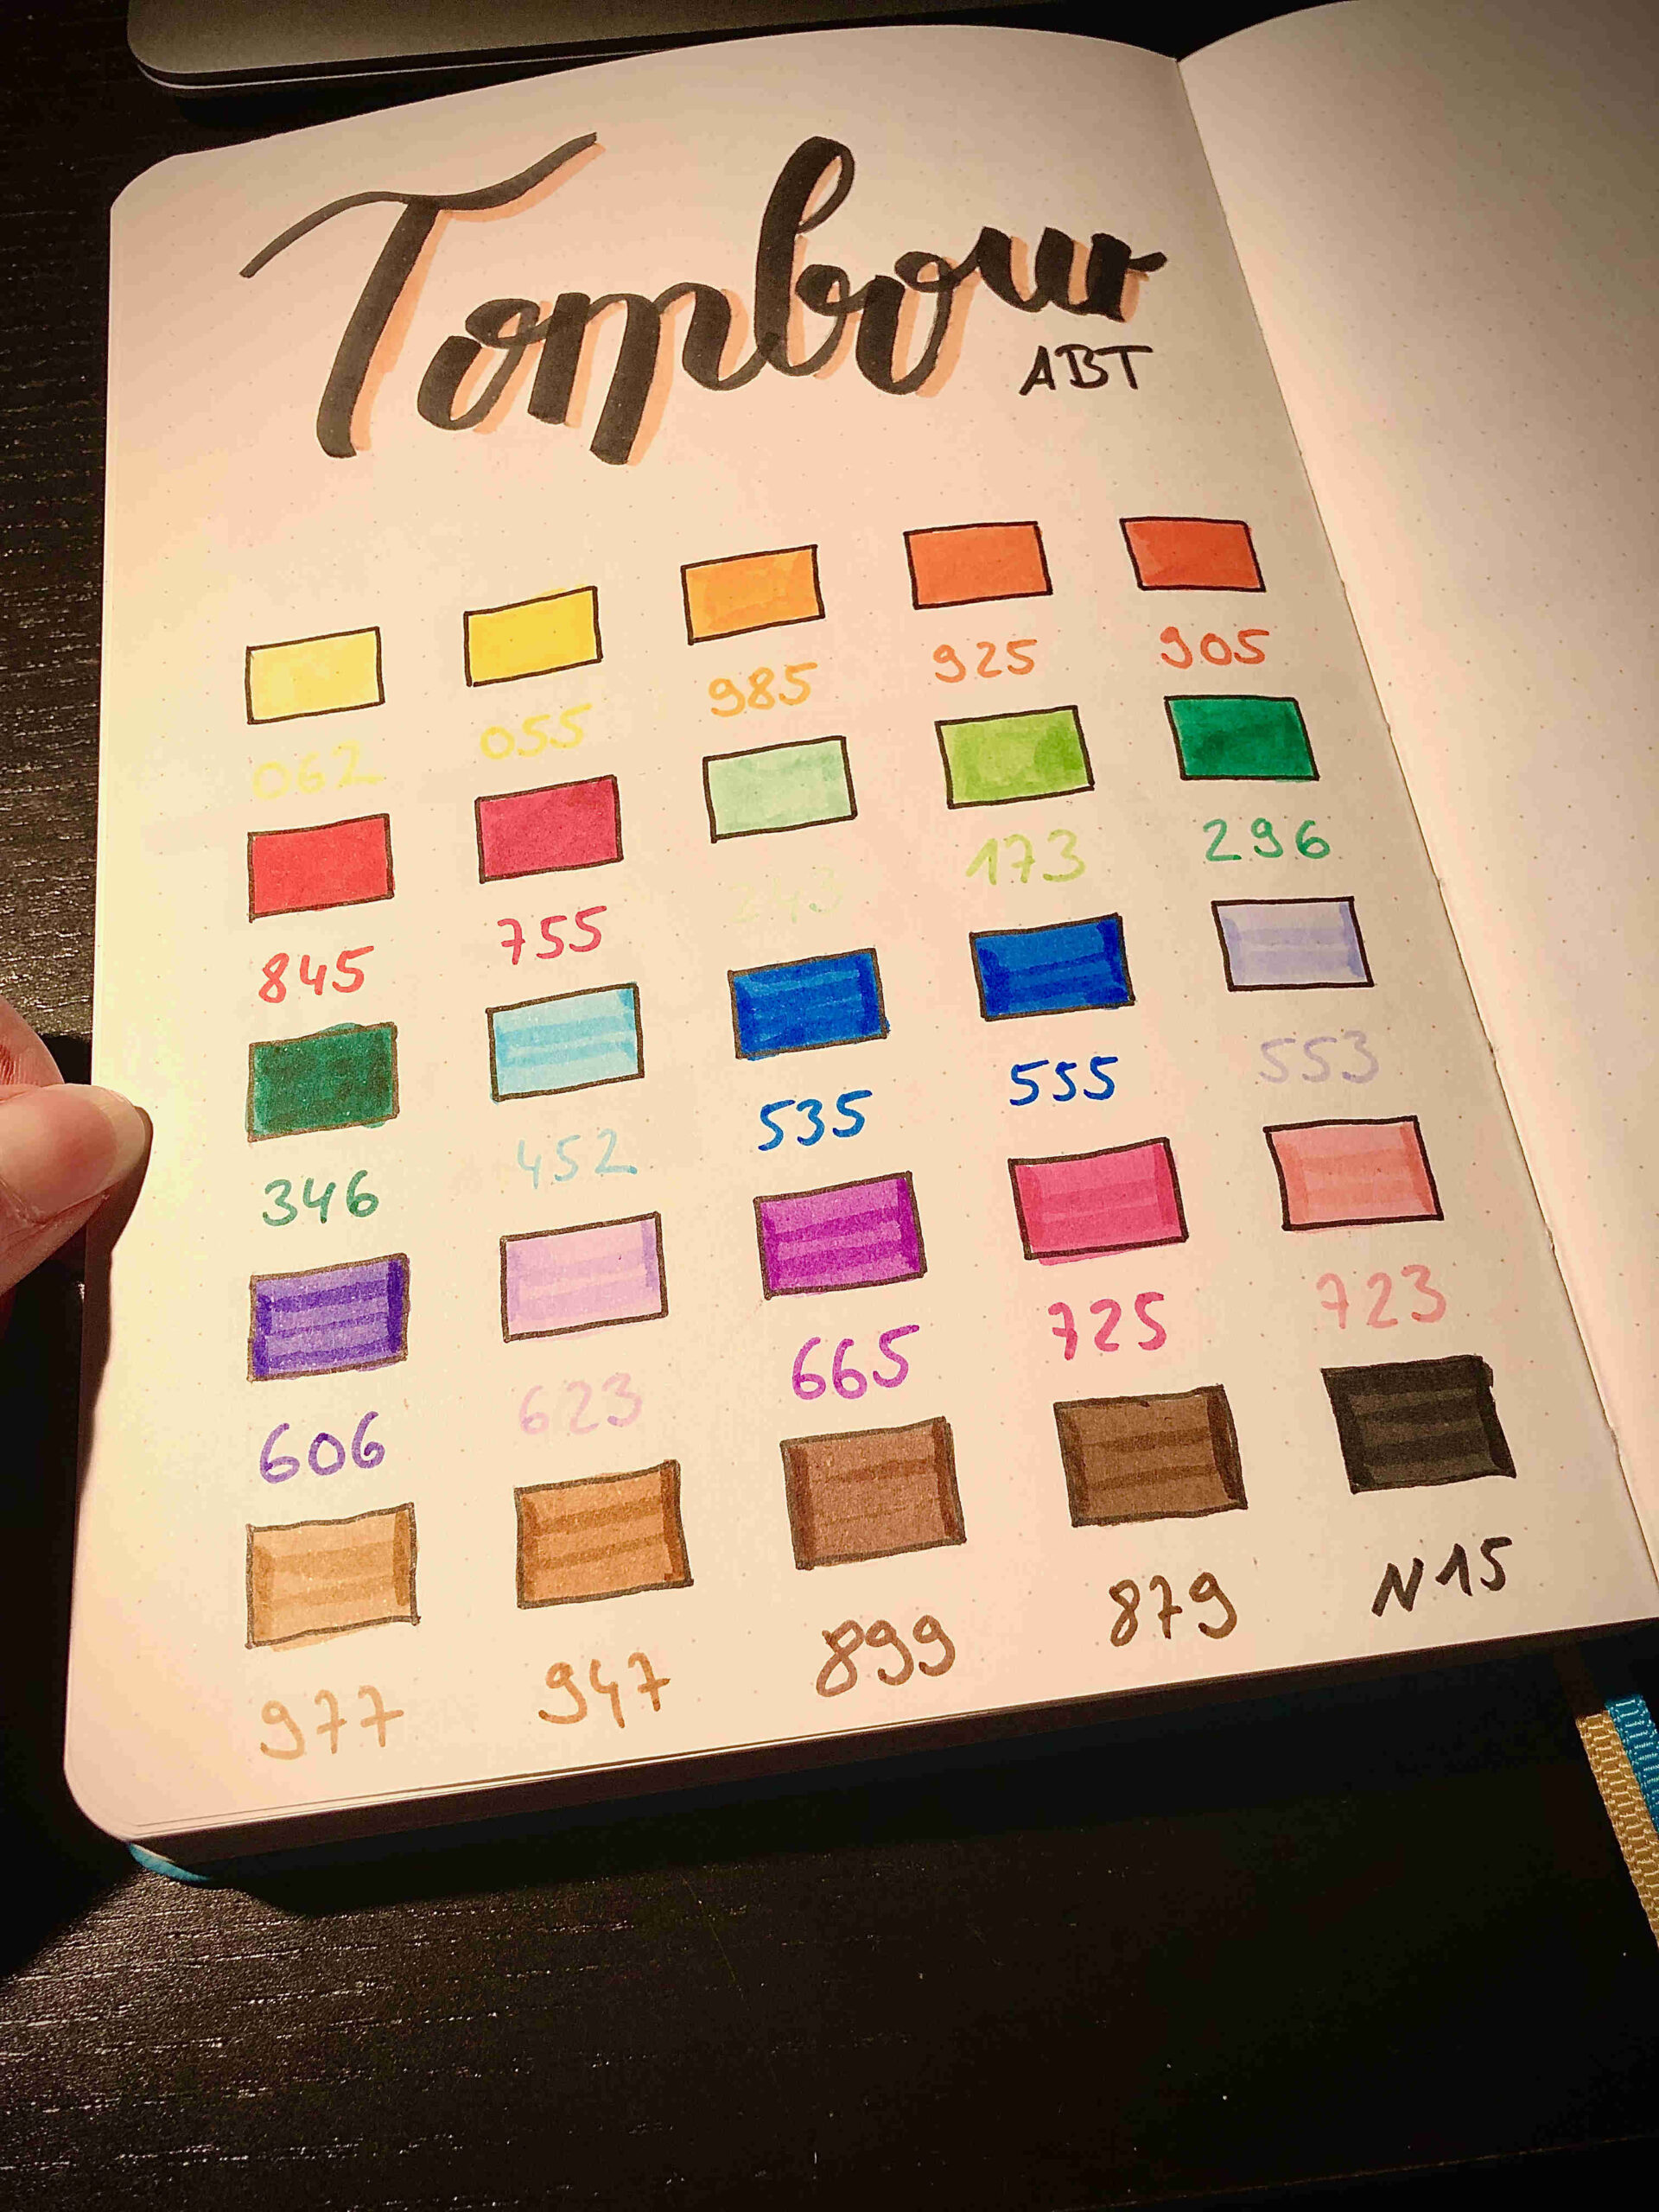 Tombow
ABT
062 055 985 925 905
845 755 243 173 296
346 452 535 555 553
606 623 665 725 723
977 947 899 879 N15